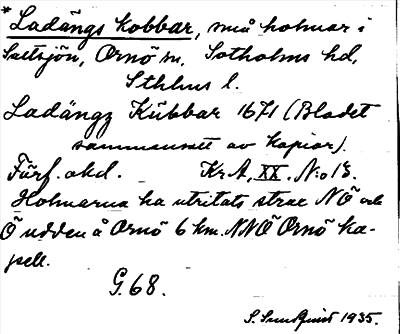 *Ladängs kobbar, små holmar i
Saltsjön, Ornö sn, Sotholms hd,
Sthlms l.
Ladängz Kübbar 1671 (Bladet
sammansatt av kopior).
Förf. okd. Kr A, XX. N:o 13.
Holmarna ha utritats strax NÖ och
Ö udden å Ornö 6 km. NNÖ Ornö ka-
pell.
G. 68.
S. Sundquist 1935.